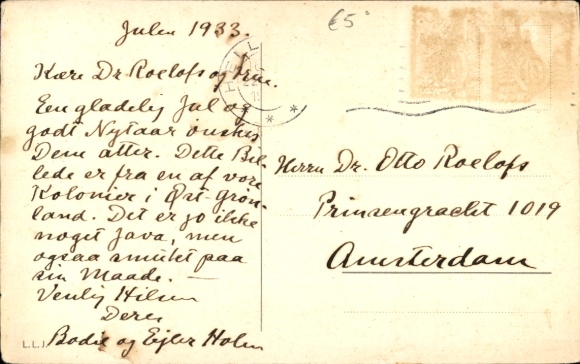 Julen 1933.
€5°
Kære Dr. Roelofs og Frue.
En gladelig Jul og
godt Nytaar ønskes
Dem atter. Dette Bil-
lede er fra en af vore
Kolonier i Øst-Grøn-
land. Det er jo ikke
noget Java, men
ogsaa smukt paa
sin Maade. —
Venlig Hilsen
Deres
Bodil og Ejler Holm
L.L.
HELL
Herrn Dr. Otto Roelofs
Prinsengracht 1019
Amsterdam